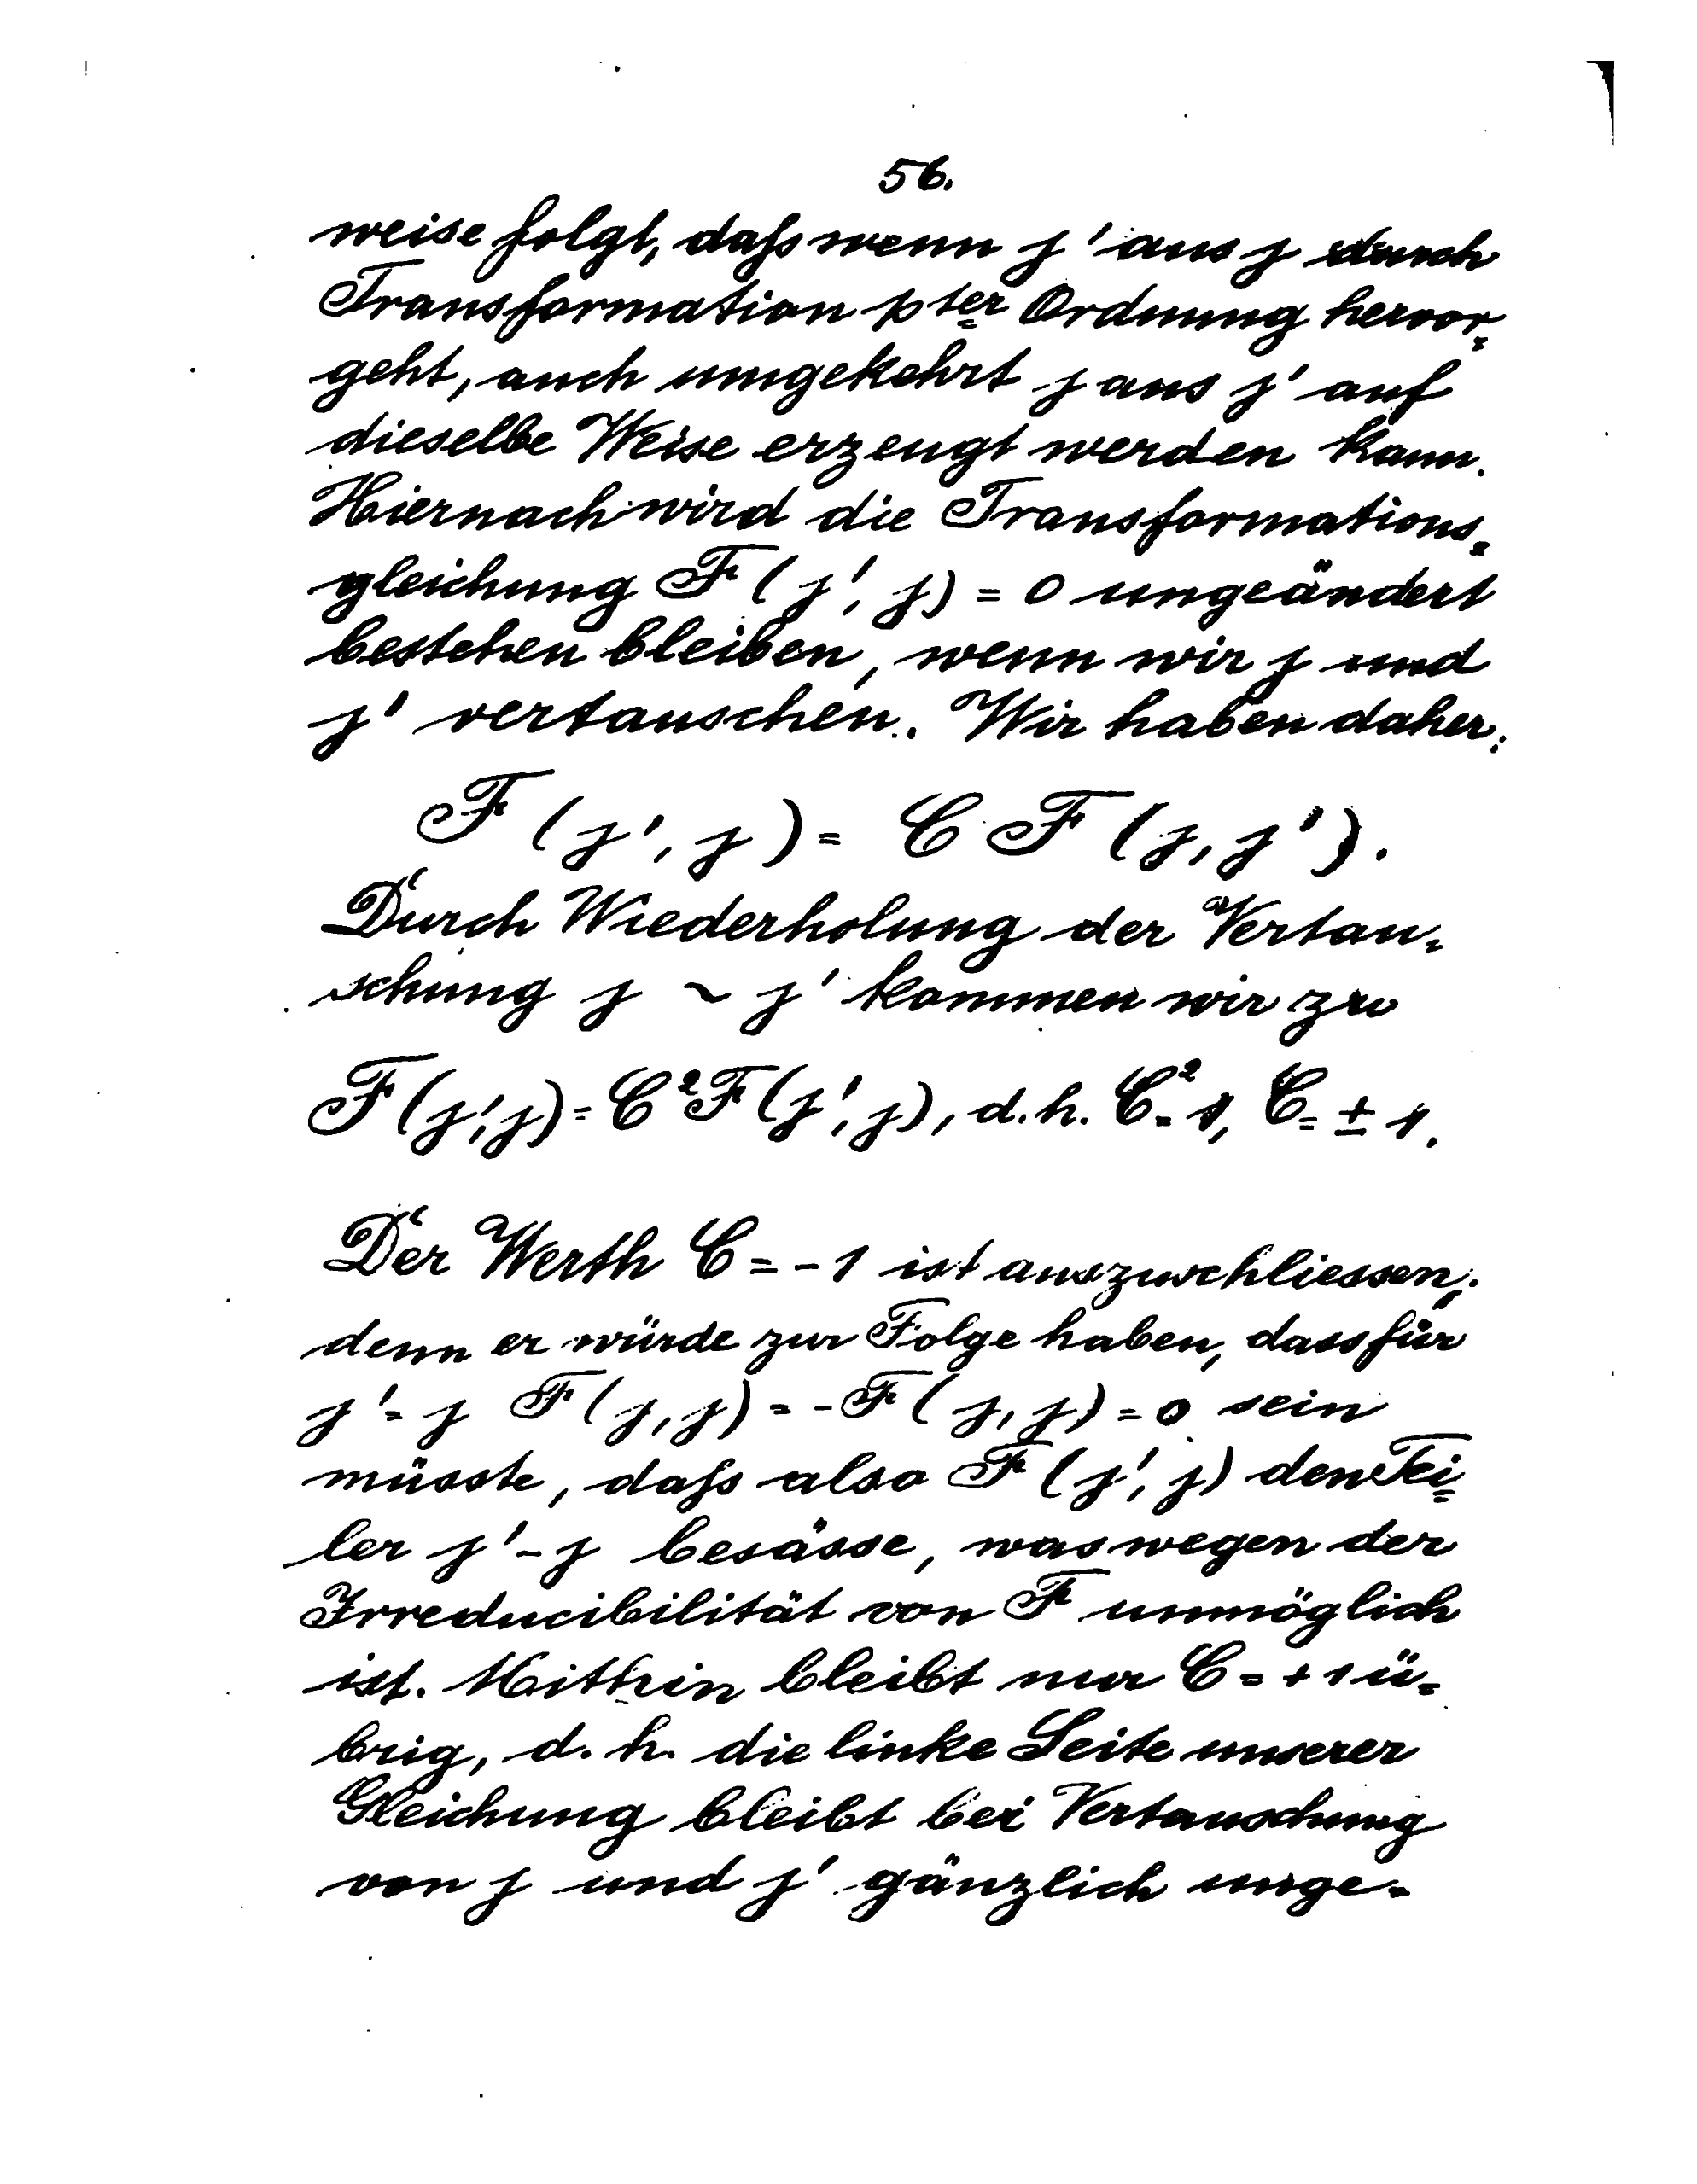 56.
weise folgt, daſs wenn j' aus j durch
Transformation pter Ordnung hervor=
geht, auch umgekehrt j aus j' auf
dieselbe Weise erzeugt werden kann.
Hiernach wird die Transformations=
gleichung F (j', j) = 0 ungeändert
bestehen bleiben, wenn wir j und
j' vertauschen. Wir haben daher:
F (j', j) = C F (j, j').
Durch Wiederholung der Vertau=
schung j ~ j' kommen wir zu
F(j',j) = C²F(j', j), d.h. C² = 1, C = ± 1.
Der Werth C = - 1 ist auszuschliessen;
denn er würde zur Folge haben, dass für
j' = j F (j, j) = - F (j, j) = 0 sein
müsste, daſs also F (j', j) den Tei=
ler j' - j besässe, was wegen der
Irreducibilität von F unmöglich
ist. Mithin bleibt nur C = + 1 ü=
brig, d. h. die linke Seite unserer
Gleichung bleibt bei Vertauschung
von j und j' gänzlich unge=